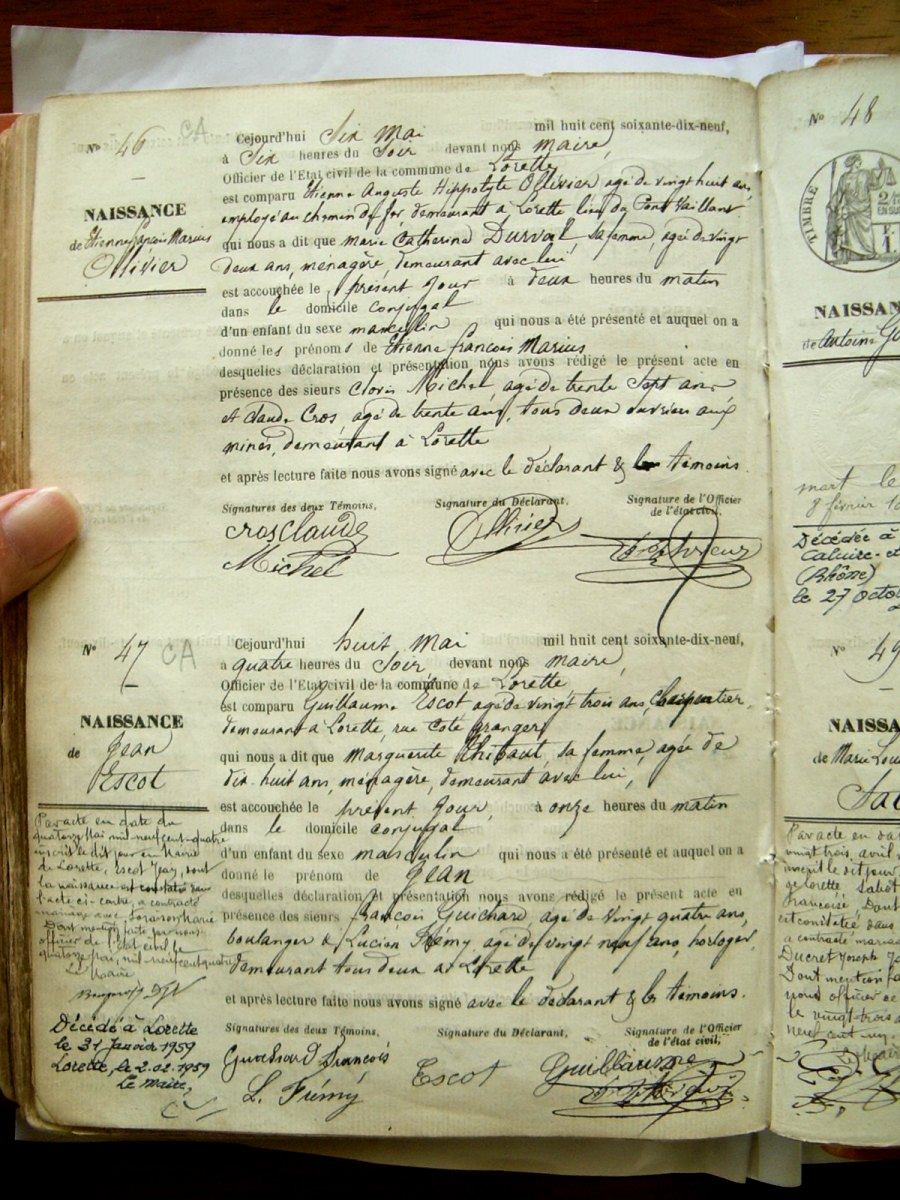 N° 46 CA
NAISSANCE
de Etienne françois Marius
Ollivier
Cejourd'hui Six Mai mil huit cent soixante-dix-neuf,
à Six heures du Soir devant nous Maire,
Officier de l'Etat civil de la commune de Lorette
est comparu Etienne Auguste Hippolyte Ollivier agé de vingt huit ans,
employé au chemin de fer, demeurant à Lorette lieu du Pont Vaillant
qui nous a dit que marie Catherine Durval, sa femme, agé de vingt
deux ans, ménagère, demeurant avec lui
est accouchée le présent jour à deux heures du matin
dans le domicile conjugal
d'un enfant du sexe masculin qui nous a été présenté et auquel on a
donné les prénoms de Etienne françois Marius
desquelles déclaration et présentation nous avons rédigé le présent acte en
présence des sieurs Clovis Michel, agé de trente Sept ans
et Claude Cros, agé de trente ans, tous deux ouvriers aux
mines, demeurant à Lorette
et après lecture faite nous avons signé avec le déclarant & les témoins.
Signatures des deux Témoins, Signature du Déclarant, Signature de l'Officier
de l'état civil,
Cros Claude Ollivier
Michel
N° 47 CA
NAISSANCE
de Jean
Escot
Par acte en date du
quatorze Mai mil neuf cent quatre
inscrit le dit jour en Mairie
de Lorette, Escot Jean, dont
la naissance est constatée dans
l'acte ci-contre, a contracté
mariage avec Marie
Dont mention faite par nous
officier de l'état civil le
quatorze Mai mil neuf cent quatre
Le Maire
Décédé à Lorette
le 31 Janvier 1959
Lorette, le 2.02.1959
Le Maire,
Cejourd'hui huit Mai mil huit cent soixante-dix-neuf,
à quatre heures du Soir devant nous Maire,
Officier de l'Etat civil de la commune de Lorette
est comparu Guillaume Escot agé de vingt trois ans, Charpentier,
demeurant à Lorette, rue Cote granger,
qui nous a dit que Marguerite Thibaut, sa femme, agée de
dix huit ans, ménagère, demeurant avec lui,
est accouchée le présent jour, à onze heures du matin
dans le domicile conjugal
d'un enfant du sexe masculin qui nous a été présenté et auquel on a
donné le prénom de Jean
desquelles déclaration et présentation nous avons rédigé le présent acte en
présence des sieurs François Guichard, agé de vingt quatre ans,
boulanger & Lucien Frémy, agé de vingt neuf ans, horloger
demeurant tous deux à Lorette
et après lecture faite nous avons signé avec le déclarant & les témoins.
Signatures des deux Témoins, Signature du Déclarant, Signature de l'Officier
de l'état civil,
Guichard François Escot Guillaume
L. Frémy
N° 48
TIMBRE
NAISSAN
de Antoine
mort le
8 février
Décédée à
Caluire-et
(Rhône)
le 27 octo
N° 49
NAISSA
de Marie Lou
Par acte en da
vingt trois, avril
inscrit le dit jour
de Lorette,
Françoise, Dont
est constatée dans
a contracté maria
Ducret Joseph
Dont mention fa
nous officier de
le vingt trois a
neuf cent